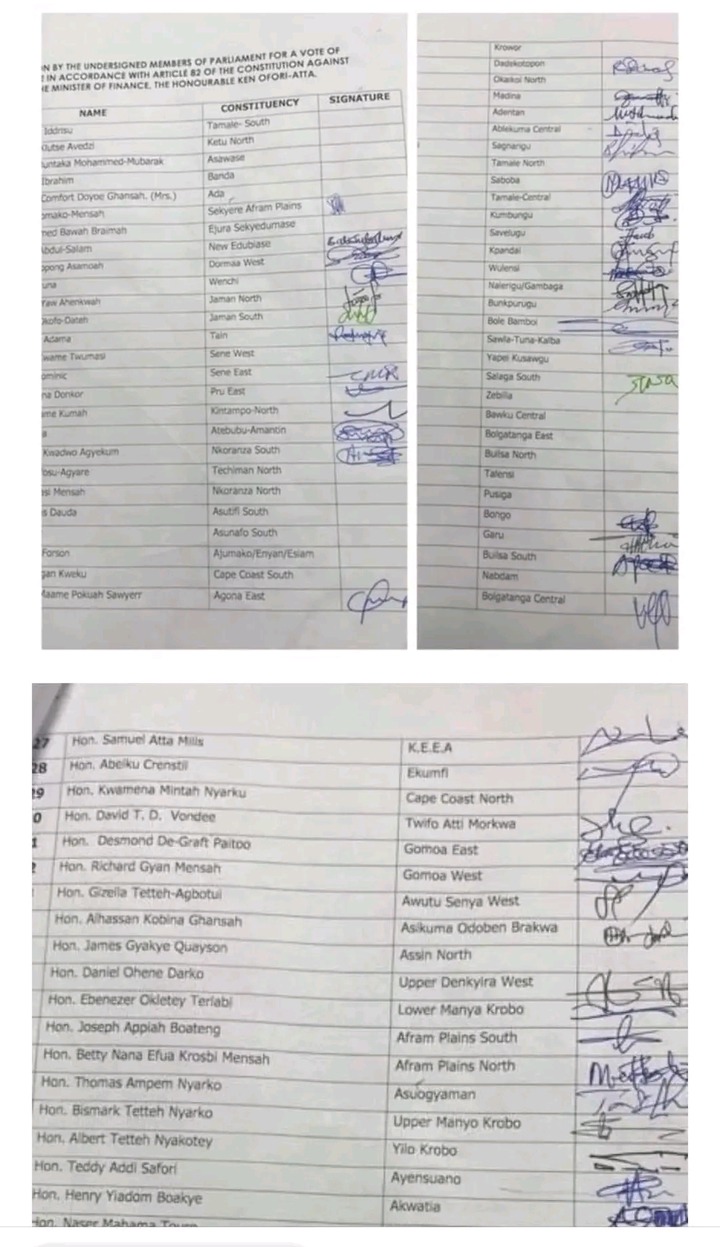 N BY THE UNDERSIGNED MEMBERS OF PARLIAMENT FOR A VOTE OF
IN ACCORDANCE WITH ARTICLE 82 OF THE CONSTITUTION AGAINST
E MINISTER OF FINANCE, THE HONOURABLE KEN OFORI-ATTA.
NAME CONSTITUENCY SIGNATURE
Iddrisu Tamale- South
Klutse Avedzi Ketu North
untaka Mohammed-Mubarak Asawase
Ibrahim Banda
Comfort Doyoe Ghansah, (Mrs.) Ada
omako-Mensah Sekyere Afram Plains
med Bawah Braimah Ejura Sekyedumase
bdul-Salam New Edubiase
pong Asamoah Dormaa West
una Wenchi
Yaw Ahenkwah Jaman North
Okofo-Dateh Jaman South
Adama Tain
wame Twumasi Sene West
ominic Sene East
na Donkor Pru East
me Kumah Kintampo-North
a Atebubu-Amantin
Kwadwo Agyekum Nkoranza South
osu-Agyare Techiman North
si Mensah Nkoranza North
s Dauda Asutifi South
Asunafo South
Forson Ajumako/Enyan/Esiam
gan Kweku Cape Coast South
Maame Pokuah Sawyerr Agona East
Krowor
Dadekotopon
Okaikoi North
Madina
Adentan
Ablekuma Central
Sagnarigu
Tamale North
Saboba
Tamale-Central
Kumbungu
Savelugu
Kpandai
Wulensi
Nalerigu/Gambaga
Bunkpurugu
Bole Bamboi
Sawla-Tuna-Kalba
Yapei Kusawgu
Salaga South
Zebilla
Bawku Central
Bolgatanga East
Builsa North
Talensi
Pusiga
Bongo
Garu
Builsa South
Nabdam
Bolgatanga Central
27 Hon. Samuel Atta Mills K.E.E.A
28 Hon. Abeiku Crenstil Ekumfi
29 Hon. Kwamena Mintah Nyarku Cape Coast North
0 Hon. David T. D. Vondee Twifo Atti Morkwa
1 Hon. Desmond De-Graft Paitoo Gomoa East
Hon. Richard Gyan Mensah Gomoa West
Hon. Gizella Tetteh-Agbotui Awutu Senya West
Hon. Alhassan Kobina Ghansah Asikuma Odoben Brakwa
Hon. James Gyakye Quayson Assin North
Hon. Daniel Ohene Darko Upper Denkyira West
Hon. Ebenezer Okletey Terlabi Lower Manya Krobo
Hon. Joseph Appiah Boateng Afram Plains South
Hon. Betty Nana Efua Krosbi Mensah Afram Plains North
Hon. Thomas Ampem Nyarko Asuogyaman
Hon. Bismark Tetteh Nyarko Upper Manyo Krobo
Hon. Albert Tetteh Nyakotey Yilo Krobo
Hon. Teddy Addi Safori Ayensuano
Hon. Henry Yiadom Boakye Akwatia
Hon. Naser Mahama